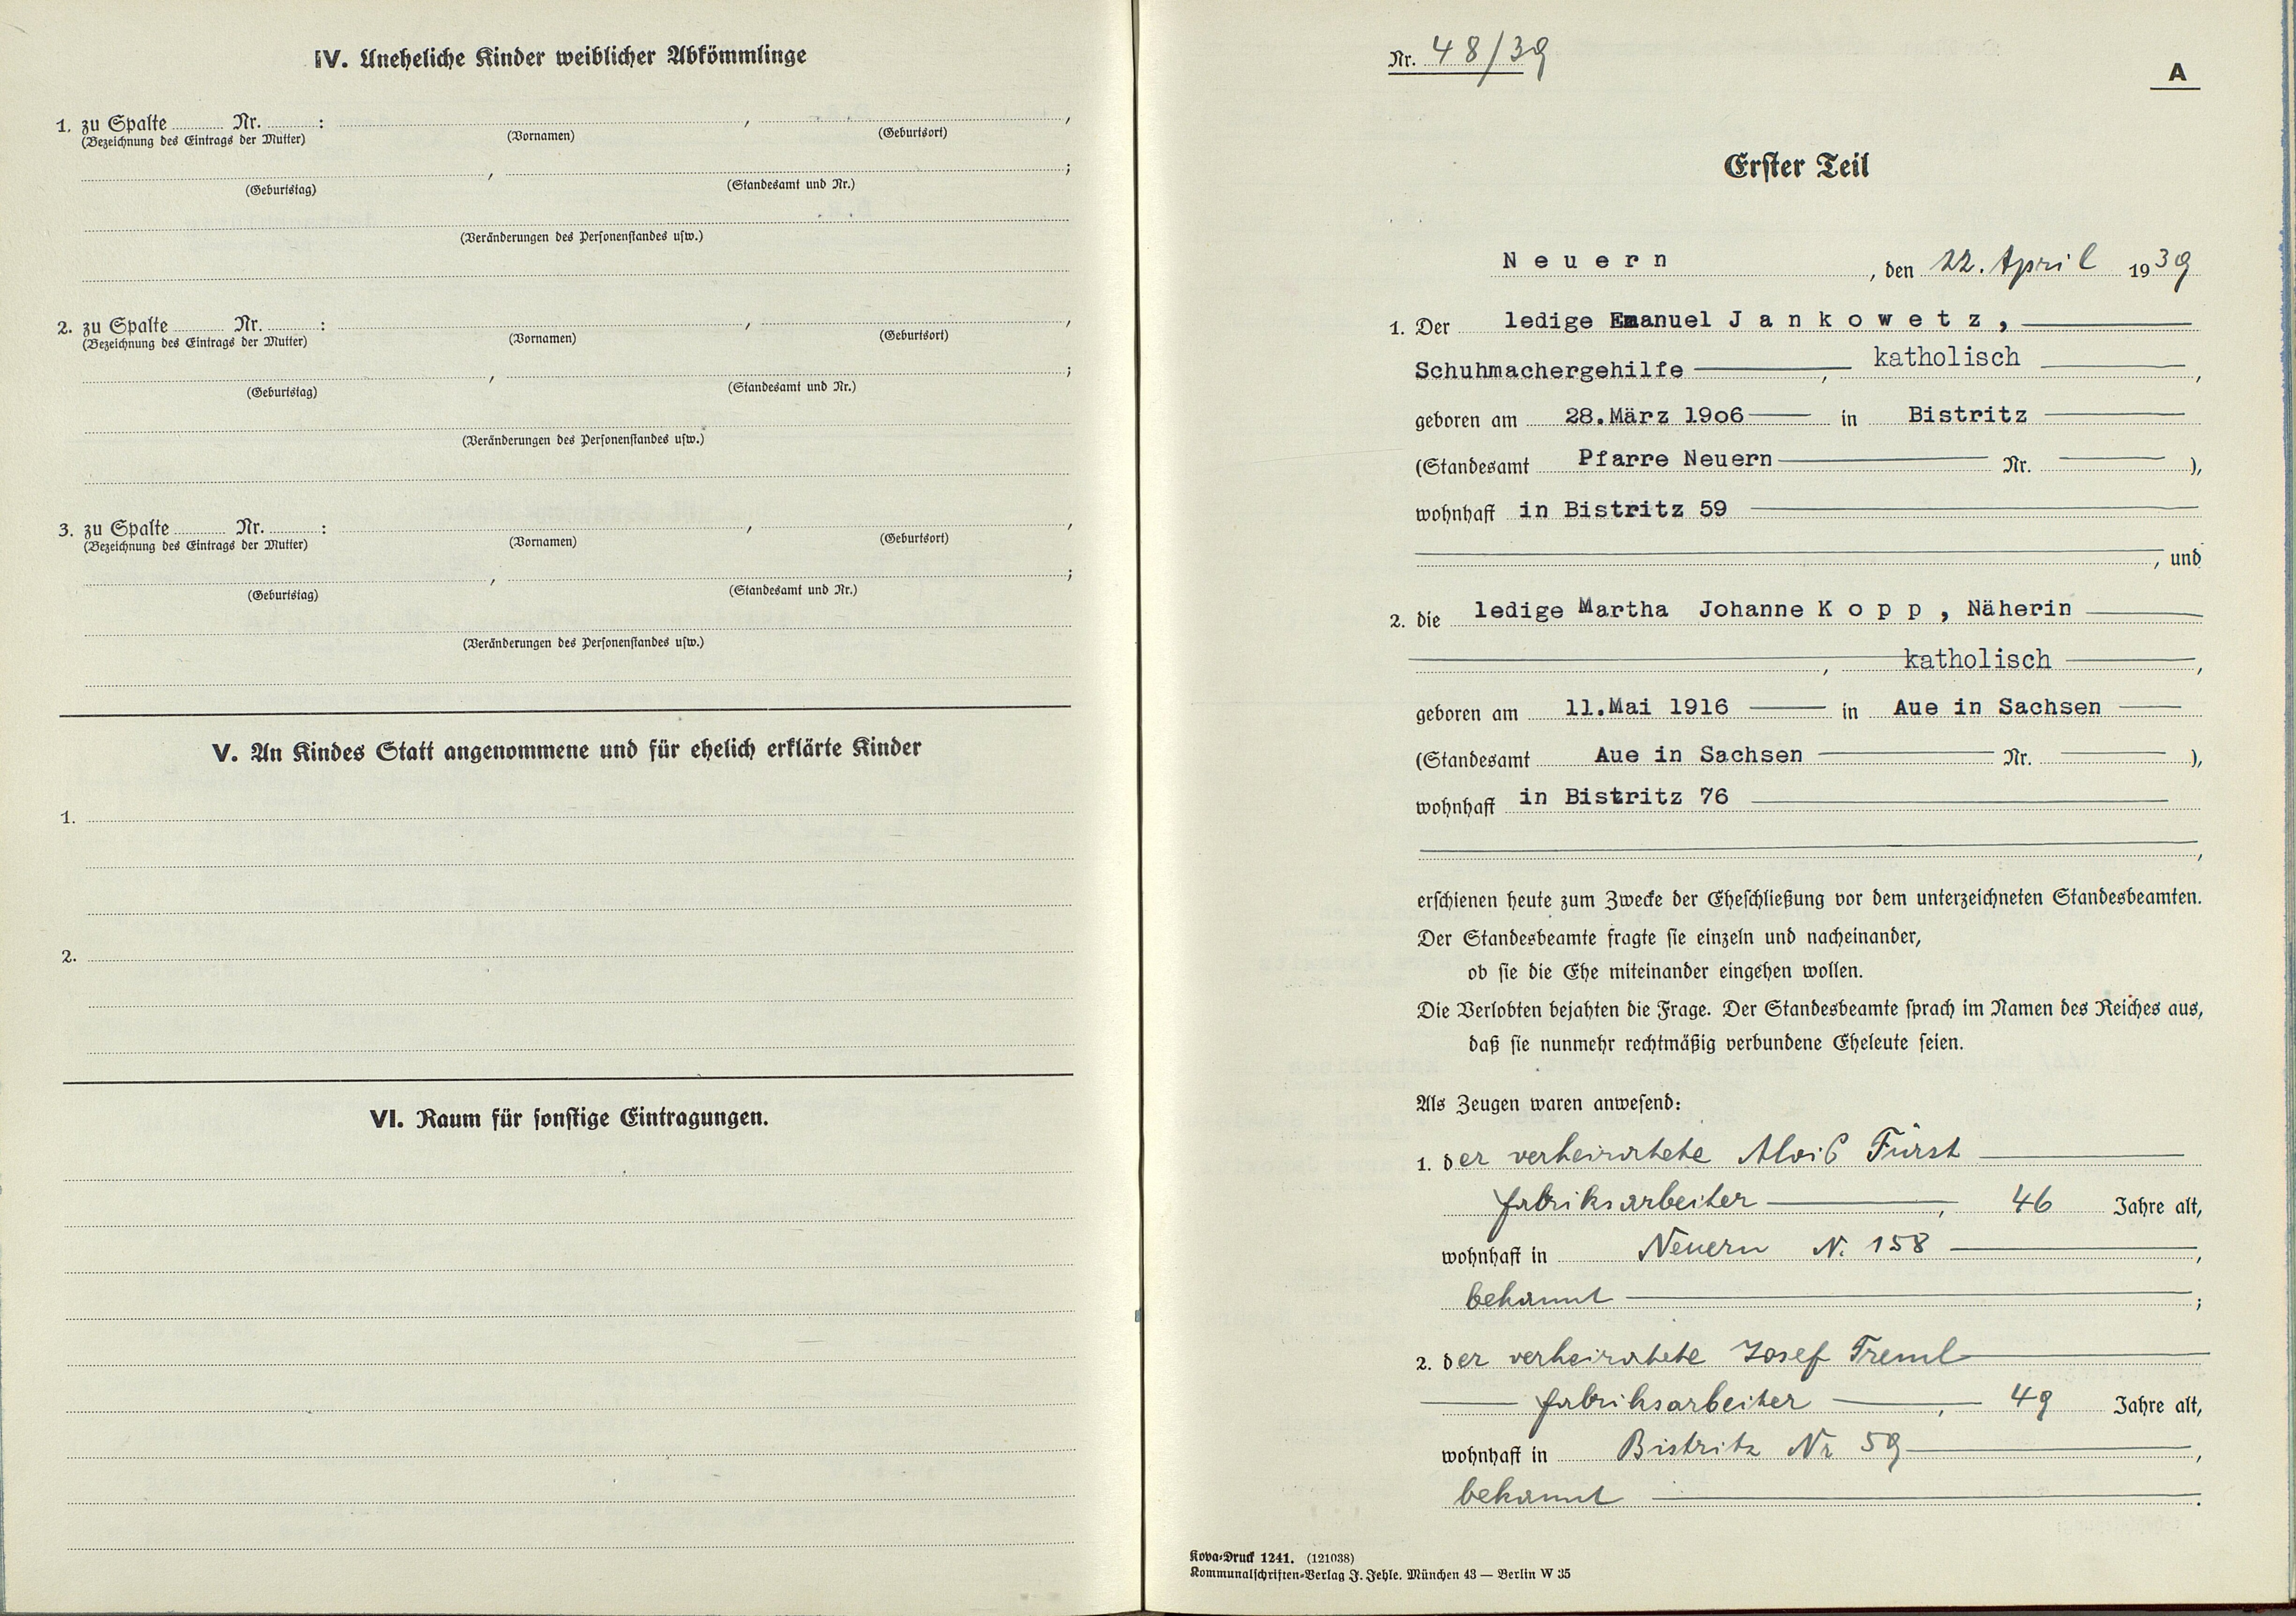 IV. Uneheliche Kinder weiblicher Abkömmlinge
1. zu Spalte Nr. : , ,
(Bezeichnung des Eintrags der Mutter) (Vornamen) (Geburtsort)
, ;
(Geburtstag) (Standesamt und Nr.)
(Veränderungen des Personenstandes usw.)
2. zu Spalte Nr. : , ,
(Bezeichnung des Eintrags der Mutter) (Vornamen) (Geburtsort)
, ;
(Geburtstag) (Standesamt und Nr.)
(Veränderungen des Personenstandes usw.)
3. zu Spalte Nr. : , ,
(Bezeichnung des Eintrags der Mutter) (Vornamen) (Geburtsort)
, ;
(Geburtstag) (Standesamt und Nr.)
(Veränderungen des Personenstandes usw.)
V. An Kindes Statt angenommene und für ehelich erklärte Kinder
1.
2.
VI. Raum für sonstige Eintragungen.
Nr. 48/39
A
Erster Teil
Neuern, den 22. April 1939
1. Der ledige Emanuel Jankowetz,
Schuhmachergehilfe, katholisch,
geboren am 28.März 19o6 in Bistritz
(Standesamt Pfarre Neuern Nr. ),
wohnhaft in Bistritz 59
, und
2. die ledige Martha Johanne Kopp, Näherin
, katholisch,
geboren am 11.Mai 1916 in Aue in Sachsen
(Standesamt Aue in Sachsen Nr. ),
wohnhaft in Bistritz 76
,
erschienen heute zum Zwecke der Eheschließung vor dem unterzeichneten Standesbeamten.
Der Standesbeamte fragte sie einzeln und nacheinander,
ob sie die Ehe miteinander eingehen wollen.
Die Verlobten bejahten die Frage. Der Standesbeamte sprach im Namen des Reiches aus,
daß sie nunmehr rechtmäßig verbundene Eheleute seien.
Als Zeugen waren anwesend:
1. der verheiratete Alois Fürst
Fabriksarbeiter, 46 Jahre alt,
wohnhaft in Neuern N. 158,
bekannt;
2. der verheiratete Josef Treml
Fabriksarbeiter, 49 Jahre alt,
wohnhaft in Bistritz Nr 59,
bekannt.
Kova-Druck 1241. (121038)
Kommunalschriften-Verlag J. Jehle. München 43 — Berlin W 35